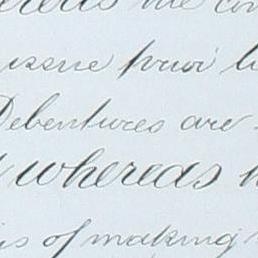 issue prior
Debentures are
whereas
of making